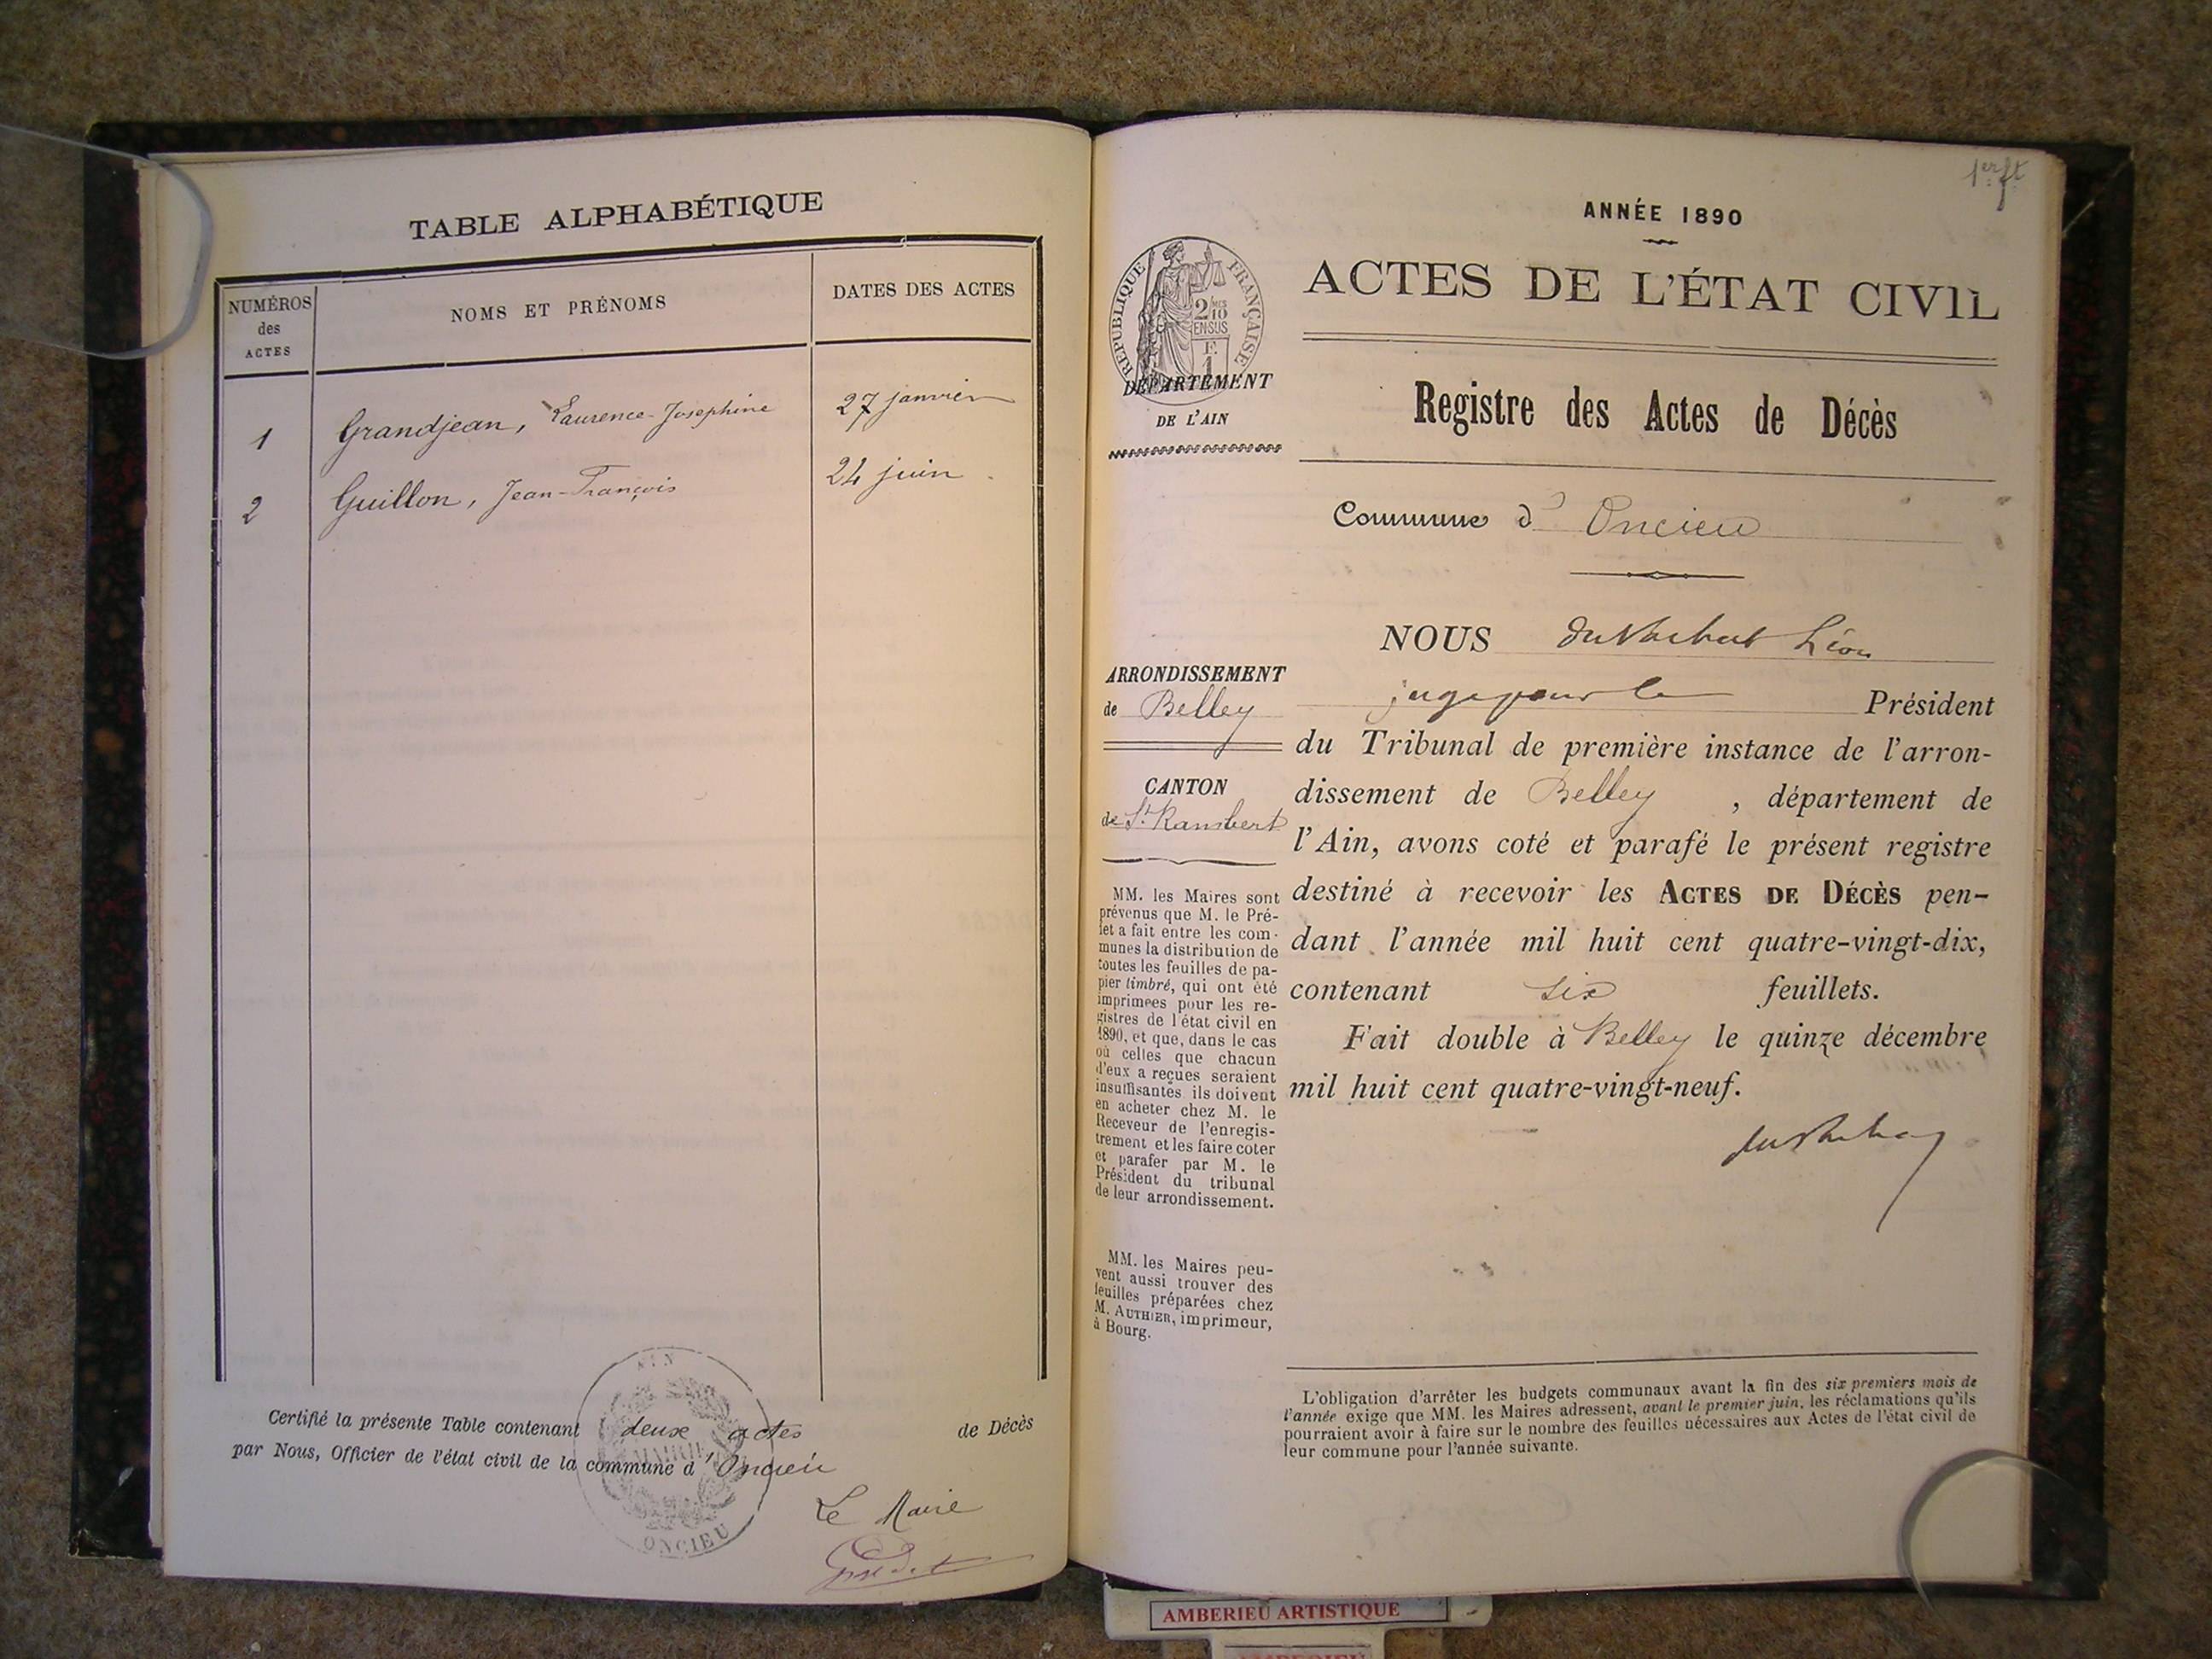 TABLE ALPHABÉTIQUE
NUMÉROS
des
ACTES
NOMS ET PRÉNOMS
DATES DES ACTES
1 Grandjean, Laurence-Josephine 27 janvier
2 Guillon, Jean-François 24 juin
Certifié la présente Table contenant deux actes de Décès
par Nous, Officier de l'état civil de la commune d'Oncieu
Le Maire
AIN
MAIRIE
ONCIEU
1er ft
ANNÉE 1890
ACTES DE L'ÉTAT CIVIL
RÉPUBLIQUE FRANÇAISE
2/10
EN SUS
F.
1
DÉPARTEMENT
DE L'AIN
Registre des Actes de Décès
Commune d' Oncieu
ARRONDISSEMENT
de Belley
CANTON
de St Rambert
MM. les Maires sont
prévenus que M. le Pré-
fet a fait entre les com-
munes la distribution de
toutes les feuilles de pa-
pier timbré, qui ont été
imprimées pour les re-
gistres de l'état civil en
1890, et que, dans le cas
où celles que chacun
d'eux a reçues seraient
insuffisantes ils doivent
en acheter chez M. le
Receveur de l'enregis-
trement et les faire coter
et parafer par M. le
Président du tribunal
de leur arrondissement.
MM. les Maires peu-
vent aussi trouver des
feuilles préparées chez
M. AUTHIER, imprimeur,
à Bourg.
NOUS Léon
juge pour le Président
du Tribunal de première instance de l'arron-
dissement de Belley , département de
l'Ain, avons coté et parafé le présent registre
destiné à recevoir les ACTES DE DÉCÈS pen-
dant l'année mil huit cent quatre-vingt-dix,
contenant six feuillets.
Fait double à Belley le quinze décembre
mil huit cent quatre-vingt-neuf.
L'obligation d'arrêter les budgets communaux avant la fin des six premiers mois de
l'année exige que MM. les Maires adressent, avant le premier juin, les réclamations qu'ils
pourraient avoir à faire sur le nombre des feuilles nécessaires aux Actes de l'état civil de
leur commune pour l'année suivante.
AMBERIEU ARTISTIQUE
AMBERIEU